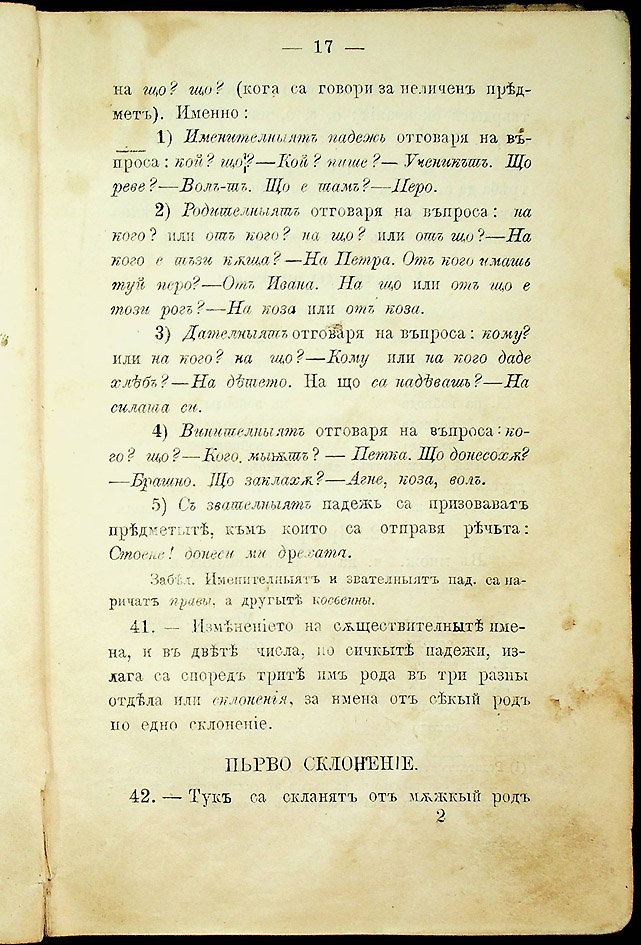 — 17 —
на що? що? (кога са говори за неличенъ прѣд-
метъ). Именно:
1) Именителныятъ падежь отговаря на въ-
проса: кой? що?—Кой? пише?—Ученикътъ. Що
реве?—Волъ-тъ. Що е тамъ?—Перо.
2) Родителныятъ отговаря на въпроса: на
кого? или отъ кого? на що? или отъ що?—На
кого е тъзи кѫща?—На Петра. Отъ кого имашь
туй перо?—Отъ Ивана. На що или отъ що е
този рогъ?—На коза или отъ коза.
3) Дателныятъ отговаря на въпроса: кому?
или на кого? на що?—Кому или на кого даде
хлѣбъ?—На дѣтето. На що са надѣвашь?—На
силата си.
4) Винителныятъ отговаря на въпроса: ко-
го? що?—Кого. мыѭтъ? — Петка. Що донесохѫ?
—Брашно. Що заклахѫ?—Агне, коза, волъ.
5) Съ звателныятъ падежь са призоваватъ
прѣдметытѣ, къмъ които са отправя рѣчьта:
Стоене! донеси ми дрехата.
Забѣл. Именителныятъ и звателныятъ пад. са на-
ричатъ правы, а другытѣ косвенны.
41. — Измѣненіето на сѫществителнытѣ име-
на, и въ двѣтѣ числа, по сичкытѣ падежи, из-
лага са споредъ тритѣ имъ рода въ три разны
отдѣла или склоненія, за имена отъ сѣкый родъ
по едно склоненіе.
ПЬРВО СКЛОНЕНІЕ.
42. — Тукъ са скланятъ отъ мѫжкый родъ
2